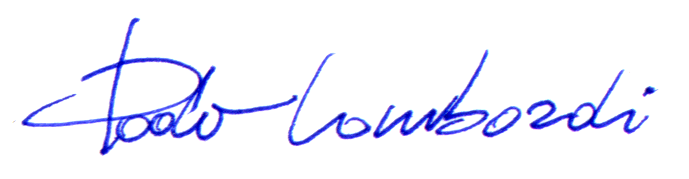 Paolo Lombardi